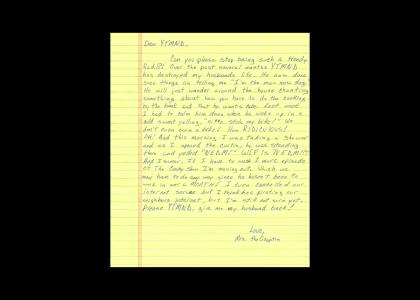 Dear YTMND,
Can you please stop being such a trendy
fad?! Over the past several months YTMND
has destroyed my husbands life. He now does
such things as telling me "I'm the man now dog."
He will just wander around the house chanting
something about how you have to do the cooking
by the book and that he wants cake. Last week
I had to calm him down when he woke up in a
cold sweat yelling, stole my bike!" We
don't even own a bike! How RIDICULOUS!
Ah! And this morning I was taking a shower
and as I opened the curtain, he was standing
there and yelled "NEDM!" WTF is NEDM?!?
And I swear, if I have to watch 1 more episode
of The Cosby Show I'm moving out. Which we
may have to do any way since he hasn't been to
work in over a MONTH! I even cancelled our
internet service but I think he's pirating our
neighbors internet, but I'm still not sure yet.
Please YTMND, give me my husband back!
Love,
Mrs.